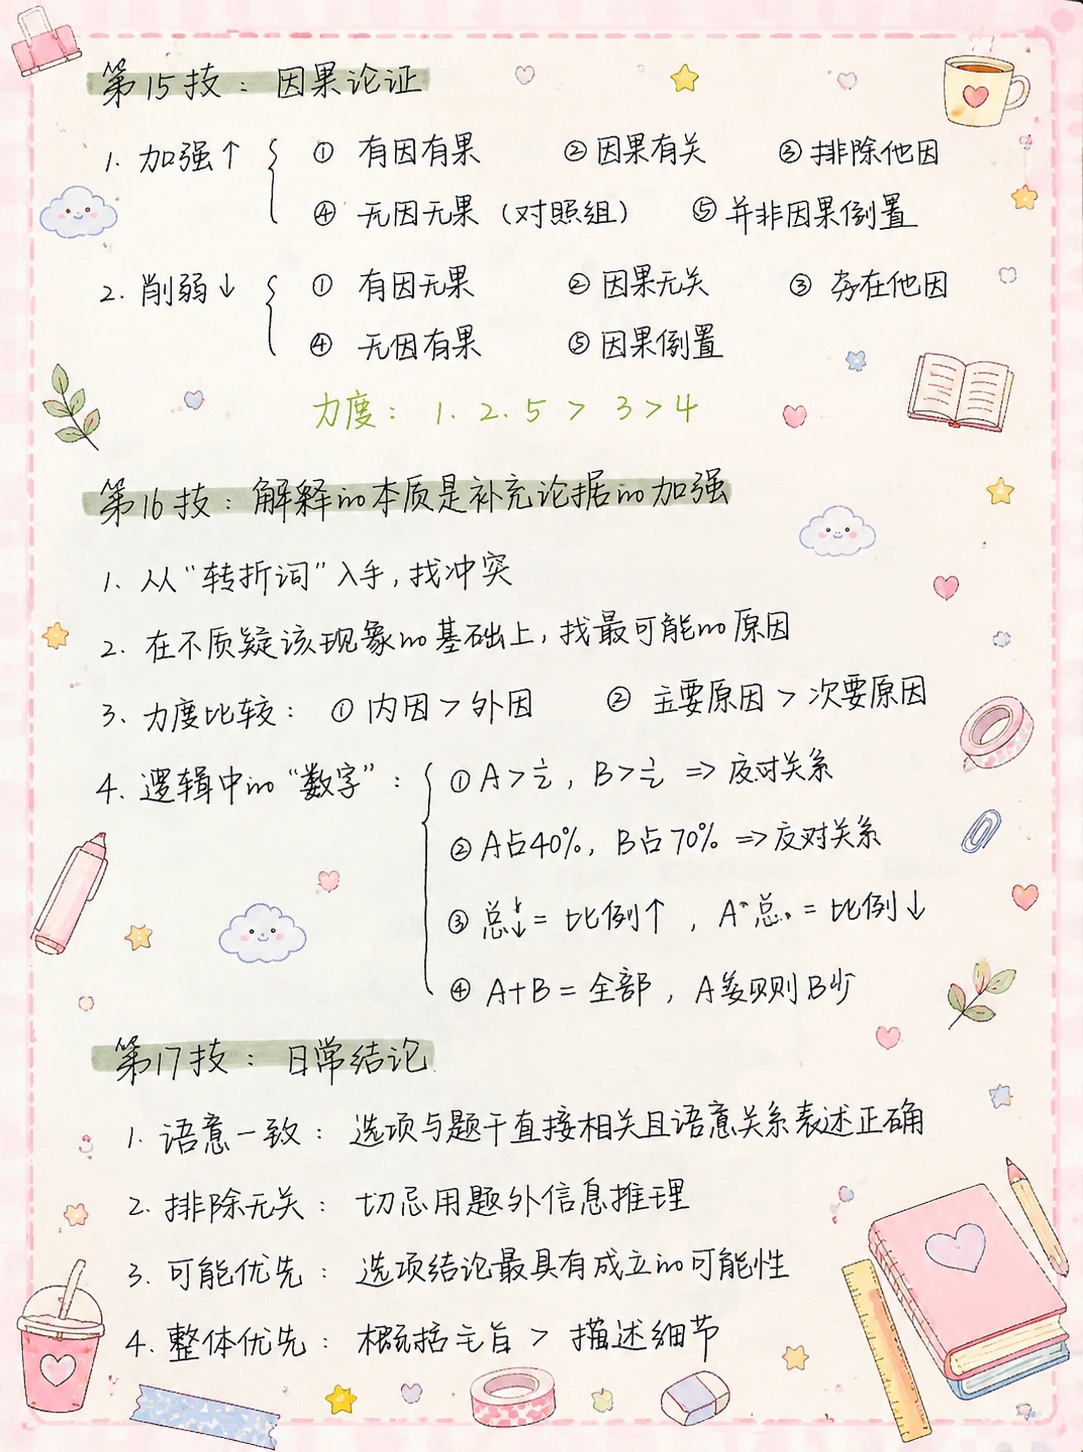 第15技：因果论证
1. 加强↑ { ① 有因有果 ② 因果有关 ③ 排除他因
④ 无因无果（对照组） ⑤ 并非因果倒置
2. 削弱↓ { ① 有因无果 ② 因果无关 ③ 存在他因
④ 无因有果 ⑤ 因果倒置
力度：1. 2. 5 > 3 > 4
第16技：解释的本质是补充论据的加强
1. 从“转折词”入手，找冲突
2. 在不质疑该现象的基础上，找最可能的原因
3. 力度比较：① 内因 > 外因 ② 主要原因 > 次要原因
4. 逻辑中的“数字”：{ ① A > ½，B > ½ => 反对关系
② A占40%，B占70% => 反对关系
③ 总↓ = 比例↑，A 总 = 比例↓
④ A+B = 全部，A 则B少
第17技：日常结论
1. 语意一致：选项与题干直接相关且语意关系表述正确
2. 排除无关：切忌用题外信息推理
3. 可能优先：选项结论最具有成立的可能性
4. 整体优先：概括主旨 > 描述细节